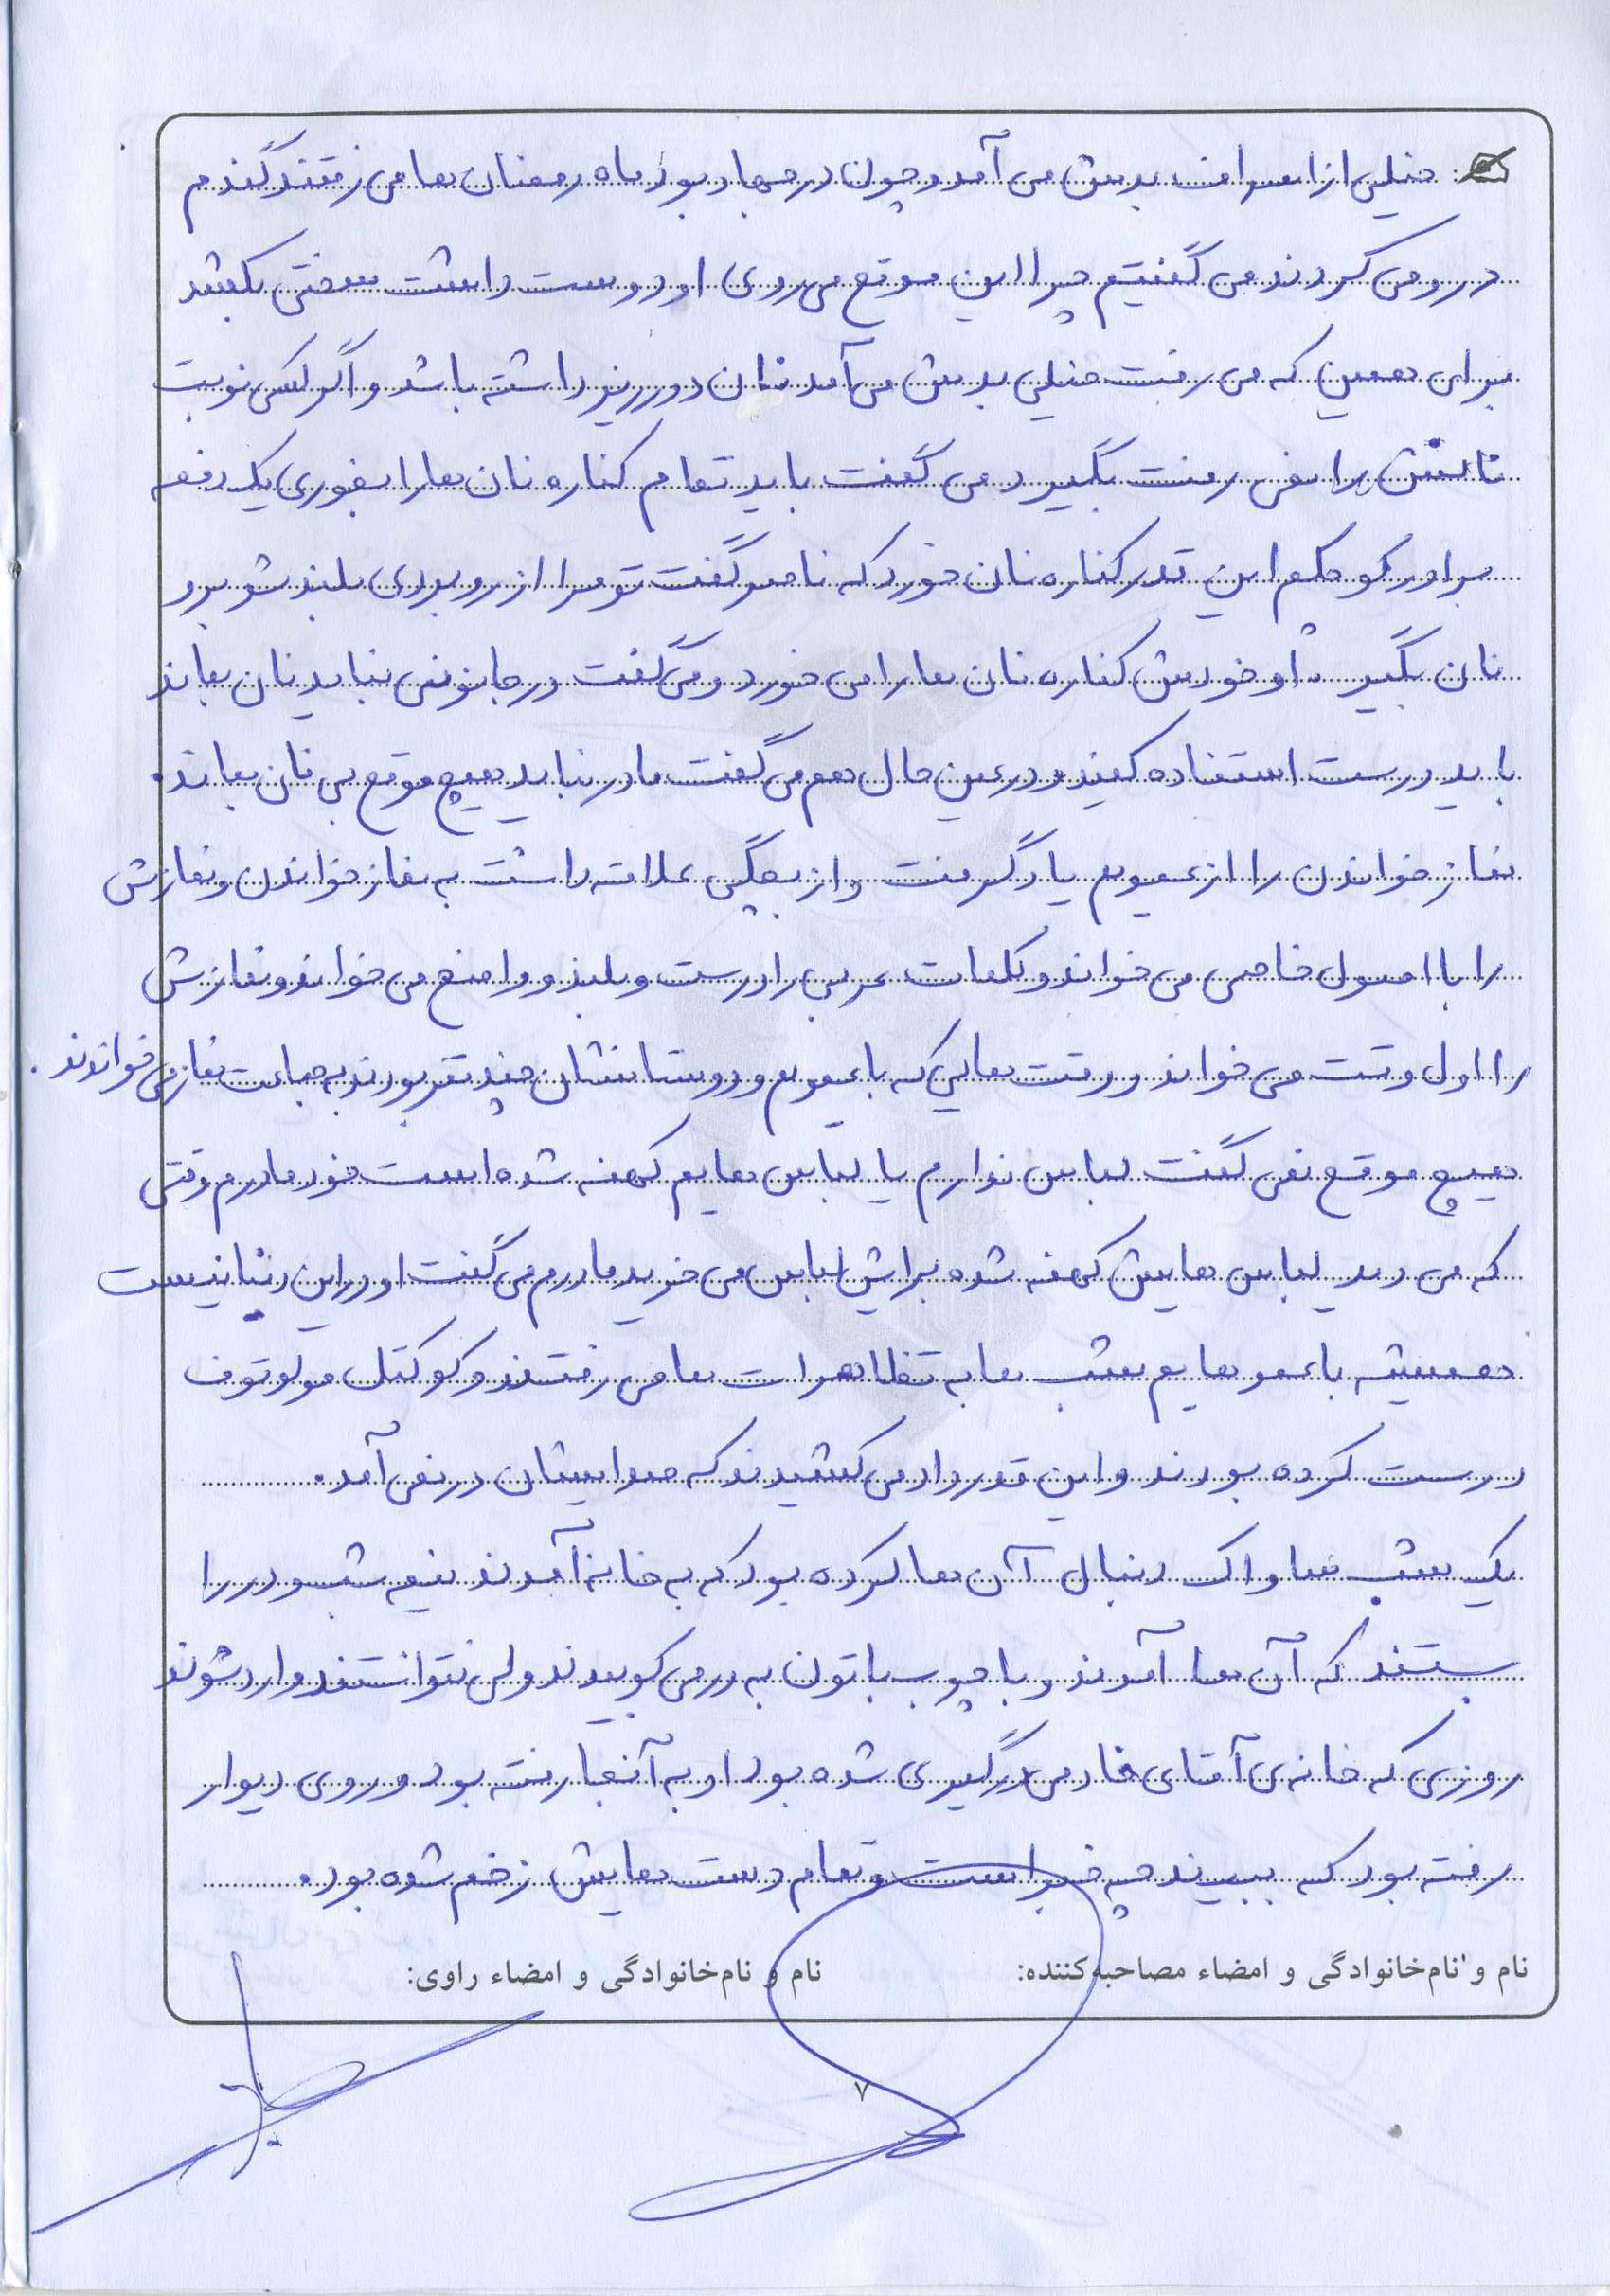 خیلی از اسراف بدش می آمد و چون در جهاد بود ماه رمضان ها می رفتند گندم
درو می کردند می گفتیم چرا این موقع می روی او دوست داشت سختی بکشد
برای همین که می رفت خیلی بدش می آمد نان دورریز داشته باشد و اگر کسی نوبت
نانش را نمی رفت بگیرد می گفت باید تمام کناره نان ها را بخوری یک دفعه
برادر کوچکم این قدر کناره نان خورد که ناصر گفت تو مرا از رو بردی بلند شو برو
نان بگیر. او خودش کناره نان ها را می خورد و می گفت در جانونی نباید نان بماند
باید درست استفاده کنید و در عین حال هم می گفت مادر نباید هیچ موقع بی نان بماند.
نماز خواندن را از عمویم یاد گرفت و از بچگی علاقه داشت به نماز خواندن و نمازش
را با اصول خاصی می خواند و کلمات عربی را درست و بلند و واضح می خواند و نمازش
را اول وقت می خواند و وقت هایی که با عمویم و دوستانشان چند نفر بودند به جماعت نماز می خواندند.
هیچ موقع نمی گفت لباس ندارم یا لباس هایم کهنه شده است خود مادرم وقتی
که می دید لباس هایش کهنه شده برایش لباس می خرید مادرم می گفت او در این دنیا نیست
همیشه با عمو هایم شب ها به تظاهرات ها می رفتند و کوکتل مولوتوف
درست کرده بودند و این قدر داد می کشیدند که صدایشان در نمی آمد.
یک شب ساواک دنبال آن ها کرده بود که به خانه آمدند نیمه شب و در را
بستند که آن ها آمدند و با چوب باتون به در می کوبیدند ولی نتوانستند وارد شوند
روزی که خانه ی آقای خادمی درگیری شده بود او به آنجا رفته بود و روی دیوار
رفته بود که ببیند چه خبر است و تمام دست هایش زخم شده بود.
نام و نام‌خانوادگی و امضاء مصاحبه‌کننده: نام و نام‌خانوادگی و امضاء راوی:
۷